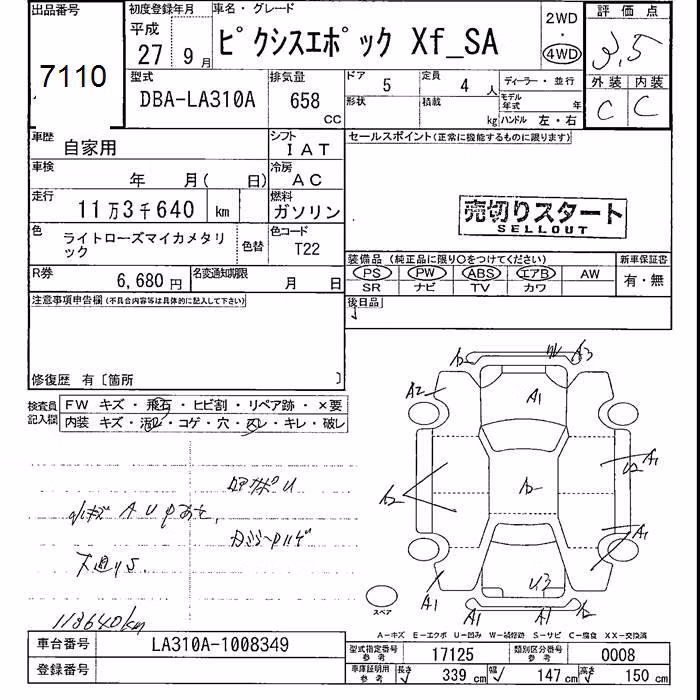 出品番号
7110
初度登録年月
平成
27 9月
車名・グレード
ピクシスエポック Xf_SA
2WD
・
4WD
評価点
3.5
外装 内装
C C
型式
DBA-LA310A
排気量
658
CC
ドア
5
定員
4 人
形状
積載
kg
ディーラー・並行
モデル年式 年
ハンドル 左・右
車歴
自家用
シフト
IAT
車検
年 月( 日)
冷房
AC
走行
11万3千640 km
燃料
ガソリン
色
ライトローズマイカメタリック
色替
色コード
T22
R券
6,680円
名変通知期限
月 日
セールスポイント(正常に機能するものに限ります)
売切りスタート
SELLOUT
装備品 (純正品に限り○をつけてください)
新車保証書
PS PW ABS エアB AW
SR ナビ TV カワ
有・無
後日品
注意事項申告欄(不具合内容等は具体的に記入して下さい)
修復歴 有〔箇所 〕
検査員記入欄
FW キズ・飛石・ヒビ割・リペア跡・×要
内装 キズ・汚レ・コゲ・穴・スレ・キレ・破レ
113640km
A2 A3
A2 A1
A2 A1
A1
U3
A1 A1 A1
スペア
A−キズ E−エクボ U−凹み W−補修跡 S−サビ C−腐食 XX−交換済
車台番号
LA310A-1008349
登録番号
型式指定番号 参考
17125
類別区分番号 参考
0008
車庫証明用 参考
長さ 339 cm 幅 147 cm 高さ 150 cm